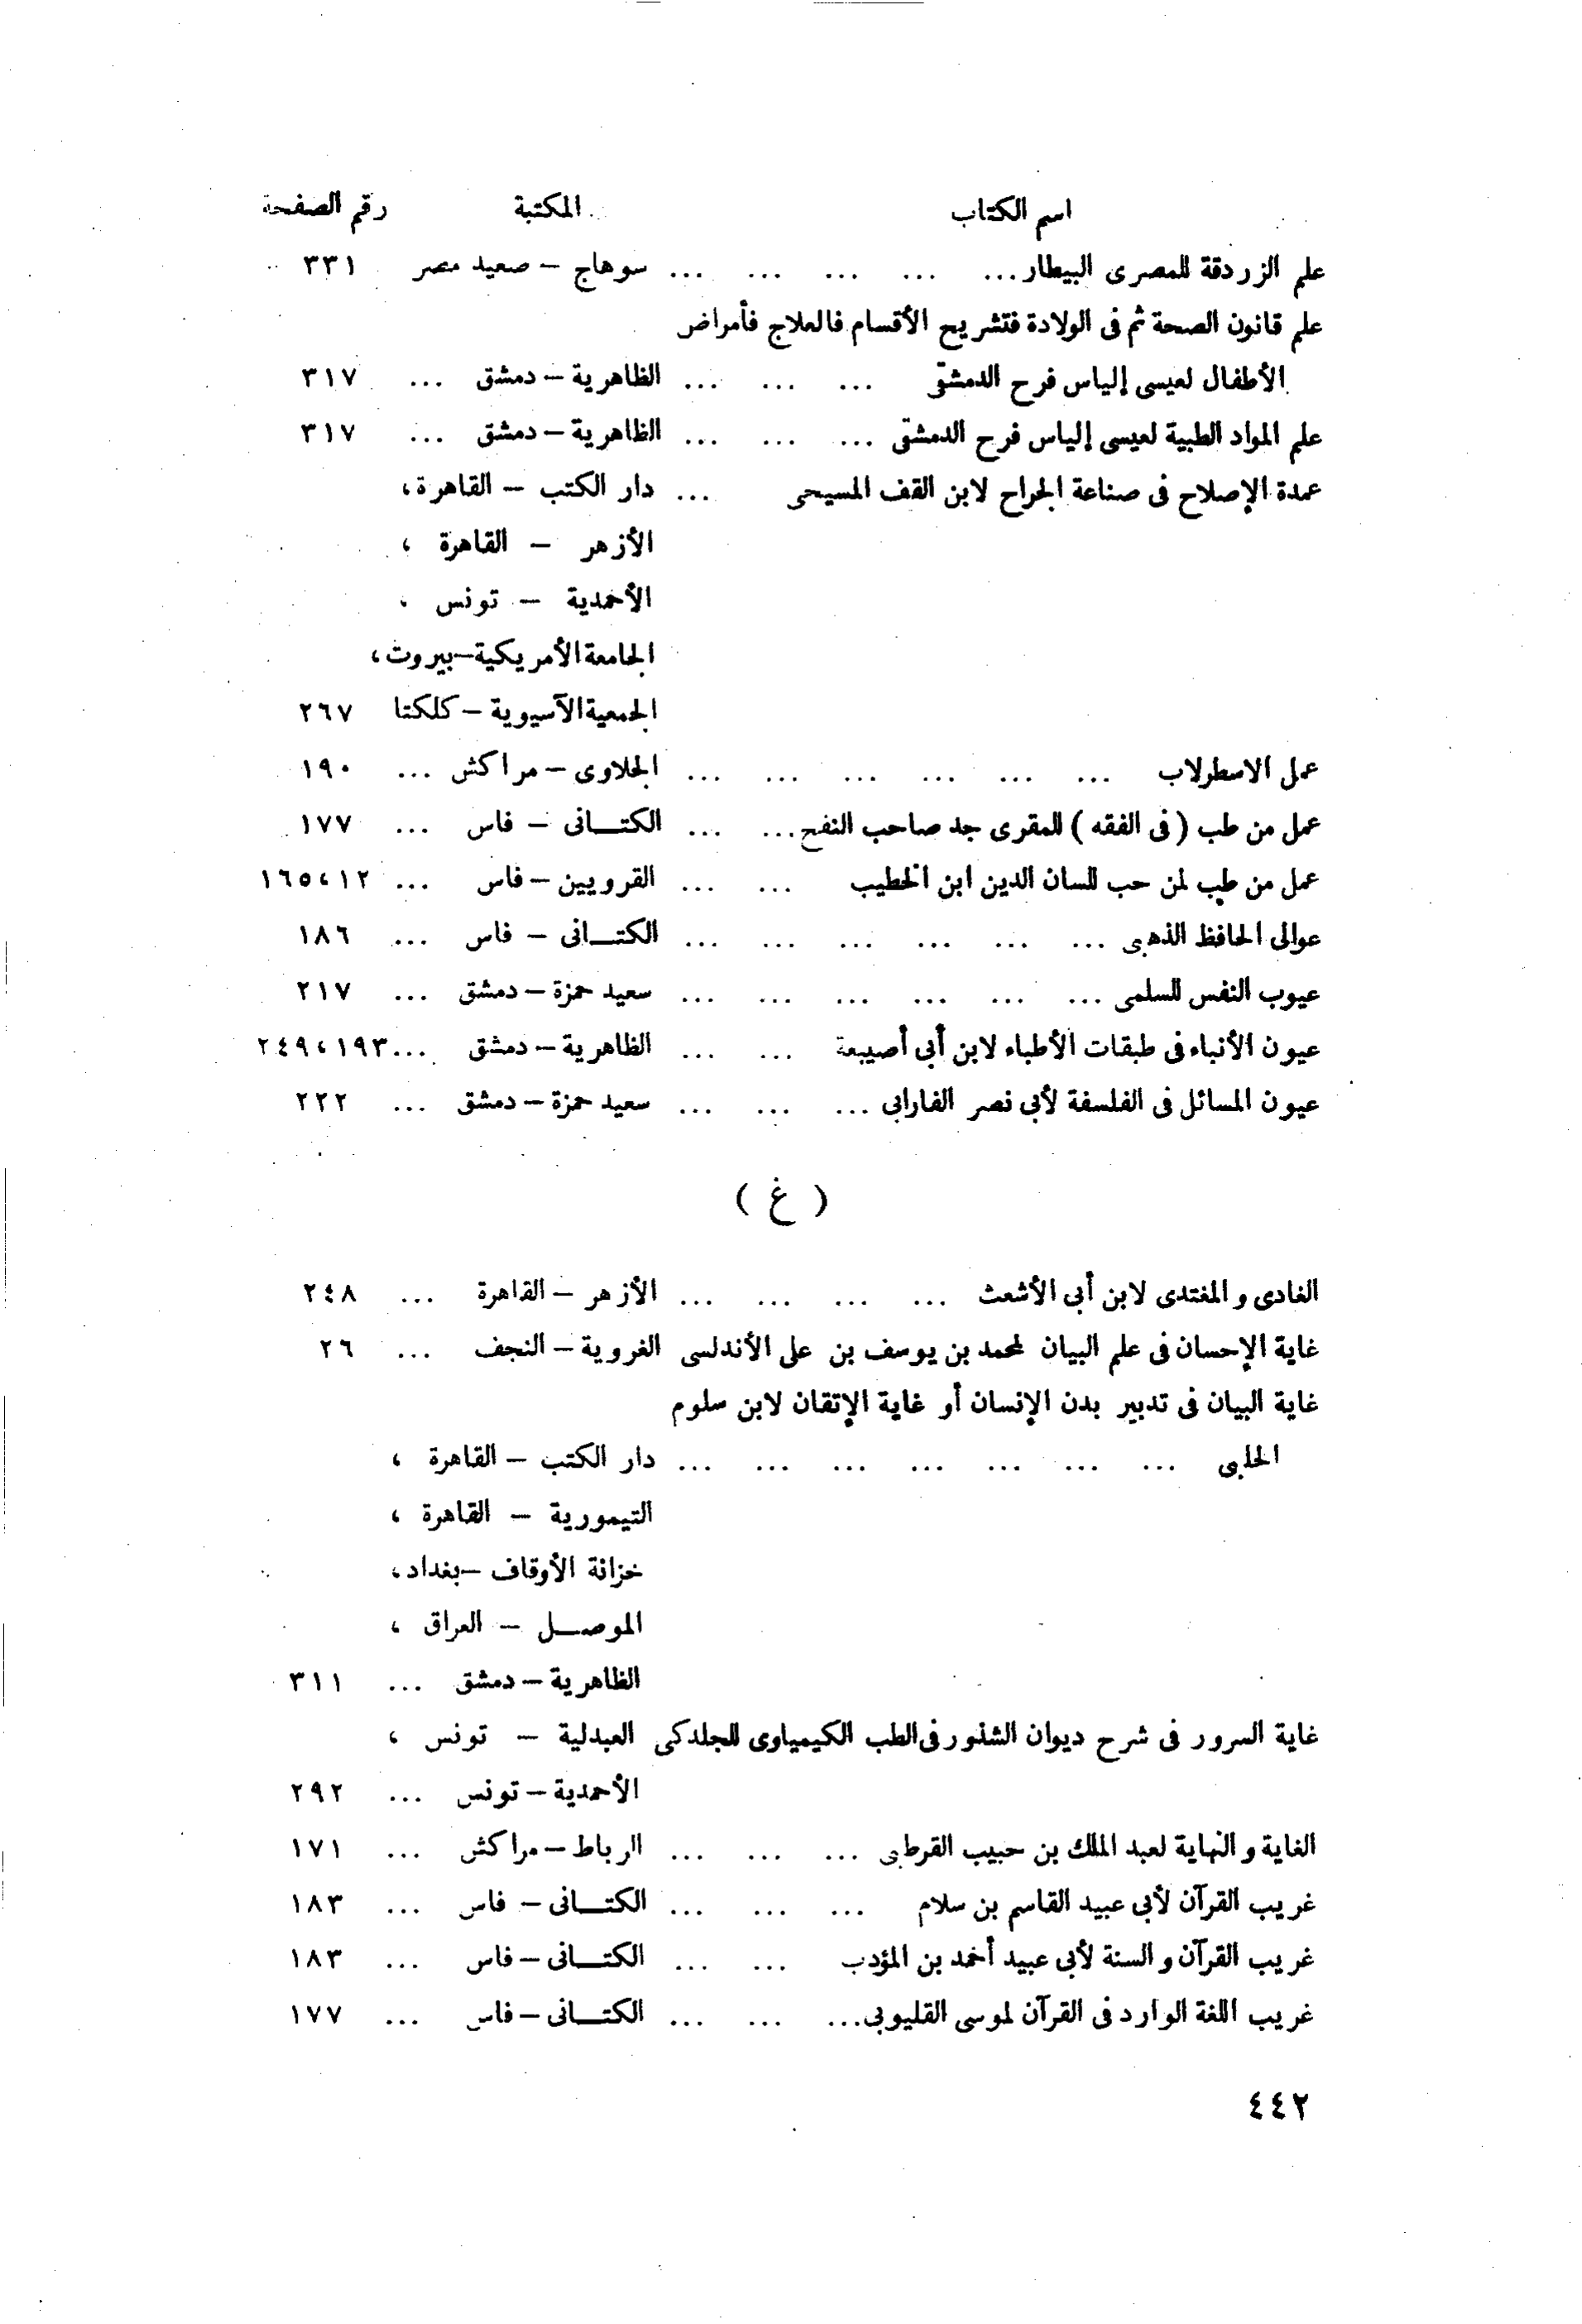 اسم الكتاب المكتبة رقم الصفحة
علم الزردقة للمصرى البيطار ... ... ... ... ... سوهاج – صعيد مصر ٣٣١
علم قانون الصحة ثم فى الولادة فتشريح الأقسام فالعلاج فأمراض
الأطفال لعيسى إلياس فرح الدمشقى ... ... ... الظاهرية – دمشق ... ٣١٧
علم المواد الطبية لعيسى إلياس فرح الدمشقى ... ... ... الظاهرية – دمشق ... ٣١٧
عمدة الإصلاح فى صناعة الجراح لابن القف المسيحى ... دار الكتب – القاهرة ،
الأزهر – القاهرة ،
الأحمدية – تونس ،
الجامعة الأمريكية – بيروت ،
الجمعية الآسيوية – كلكتا ٢٦٧
عمل الاسطرلاب ... ... ... ... ... ... الجلاوى – مراكش ... ١٩٠
عمل من طب ( فى الفقه ) للمقرى جد صاحب النفح ... ... الكتـانى – فاس ... ١٧٧
عمل من طب لمن حب للسان الدين ابن الخطيب ... ... القرويين – فاس ... ١٢ ، ١٦٥
عوالى الحافظ الذهبى ... ... ... ... ... ... الكتـانى – فاس ... ١٨٦
عيوب النفس للسلمى ... ... ... ... ... ... سعيد حمزة – دمشق ... ٢١٧
عيون الأنباء فى طبقات الأطباء لابن أبى أصيبعة ... ... الظاهرية – دمشق ... ١٩٣ ، ٢٤٩
عيون المسائل فى الفلسفة لأبى نصر الفارابى ... ... ... سعيد حمزة – دمشق ... ٢٢٢
( غ )
الغادى والمغتدى لابن أبى الأشعث ... ... ... ... الأزهر – القاهرة ... ٢٤٨
غاية الإحسان فى علم البيان لمحمد بن يوسف بن على الأندلسى الغروية – النجف ... ٢٦
غاية البيان فى تدبير بدن الإنسان أو غاية الإتقان لابن سلوم
الحلبى ... ... ... ... ... ... ... دار الكتب – القاهرة ،
التيمورية – القاهرة ،
خزانة الأوقاف – بغداد ،
الموصـل – العراق ،
الظاهرية – دمشق ... ٣١١
غاية السرور فى شرح ديوان الشذور فى الطب الكيمياوى للجلدكى العبدلية – تونس ،
الأحمدية – تونس ... ٢٩٢
الغاية والنهاية لعبد الملك بن حبيب القرطبى ... ... ... الرباط – مراكش ... ١٧١
غريب القرآن لأبى عبيد القاسم بن سلام ... ... ... الكتـانى – فاس ... ١٨٣
غريب القرآن والسنة لأبى عبيد أحمد بن المؤدب ... ... الكتـانى – فاس ... ١٨٣
غريب اللغة الوارد فى القرآن لموسى القليوبى ... ... ... الكتـانى – فاس ... ١٧٧
٤٤٢